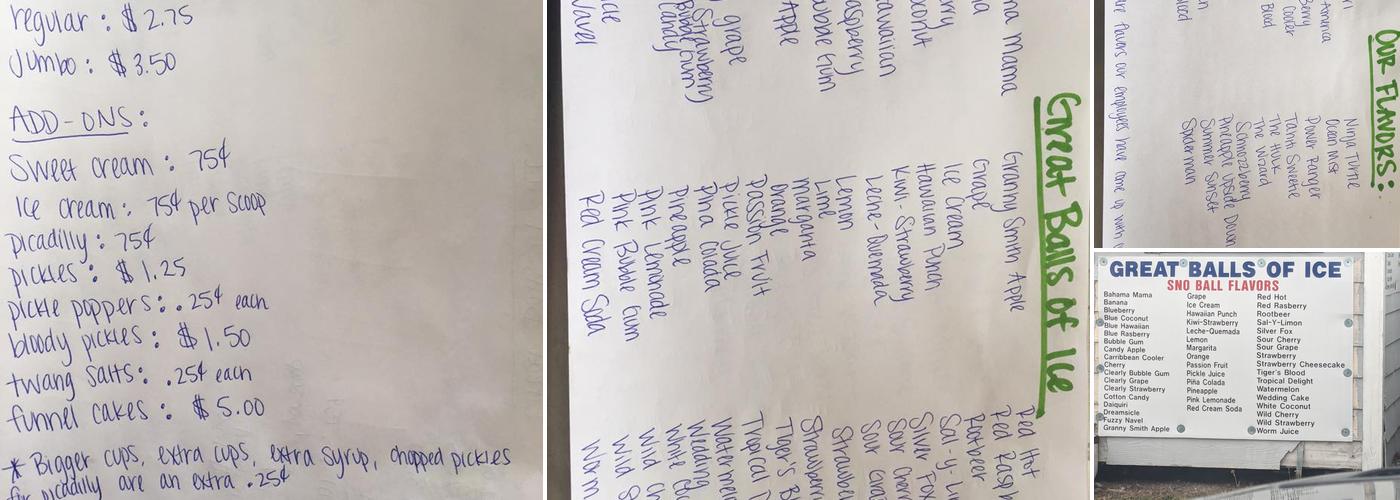 regular : $ 2.75
Jumbo : $ 3.50
ADD-ONS:
Sweet cream : 75¢
Ice cream : 75¢ per scoop
picadilly : 75¢
pickles : $ 1.25
pickle poppers : .25¢ each
bloody pickles : $ 1.50
twang salts : .25¢ each
funnel cakes : $ 5.00
* Bigger cups, extra cups, extra syrup, chopped pickles
for picadilly are an extra .25¢
Great Balls of Ice
Mama
Hawaiian
Apple
grape
Strawberry
Candy
Navel
Granny Smith Apple
Grape
Ice Cream
Hawaiian Punch
Kiwi-Strawberry
Leche-Quemada
Lemon
Lime
Margarita
Orange
Passion Fruit
Pickle Juice
Pina Colada
Pineapple
Pink Lemonade
Pink Bubble Gum
Red Cream Soda
Red Hot
Red
Rootbeer
Sal-y-
Silver Fox
Sour
Sour
Tiger's
Tropical
Wedding
White
Wild
Wild
Worm
OUR FLAVORS:
Berry
Cooler
Ninja Turtle
Ocean Mist
Power Ranger
Tahiti Sweetie
The Hulk
The Wizard
Schnozzberry
Pineapple Upside Down
Summer Sunset
Spiderman
flavors our employees have come up with
GREAT BALLS OF ICE
SNO BALL FLAVORS
Bahama Mama
Banana
Blueberry
Blue Coconut
Blue Hawaiian
Blue Rasberry
Bubble Gum
Candy Apple
Carribbean Cooler
Cherry
Clearly Bubble Gum
Clearly Grape
Clearly Strawberry
Cotton Candy
Daiquiri
Dreamsicle
Fuzzy Navel
Granny Smith Apple
Grape
Ice Cream
Hawaiian Punch
Kiwi-Strawberry
Leche-Quemada
Lemon
Margarita
Orange
Passion Fruit
Pickle Juice
Piña Colada
Pineapple
Pink Lemonade
Red Cream Soda
Red Hot
Red Rasberry
Rootbeer
Sal-Y-Limon
Silver Fox
Sour Cherry
Sour Grape
Strawberry
Strawberry Cheesecake
Tiger's Blood
Tropical Delight
Watermelon
Wedding Cake
White Coconut
Wild Cherry
Wild Strawberry
Worm Juice